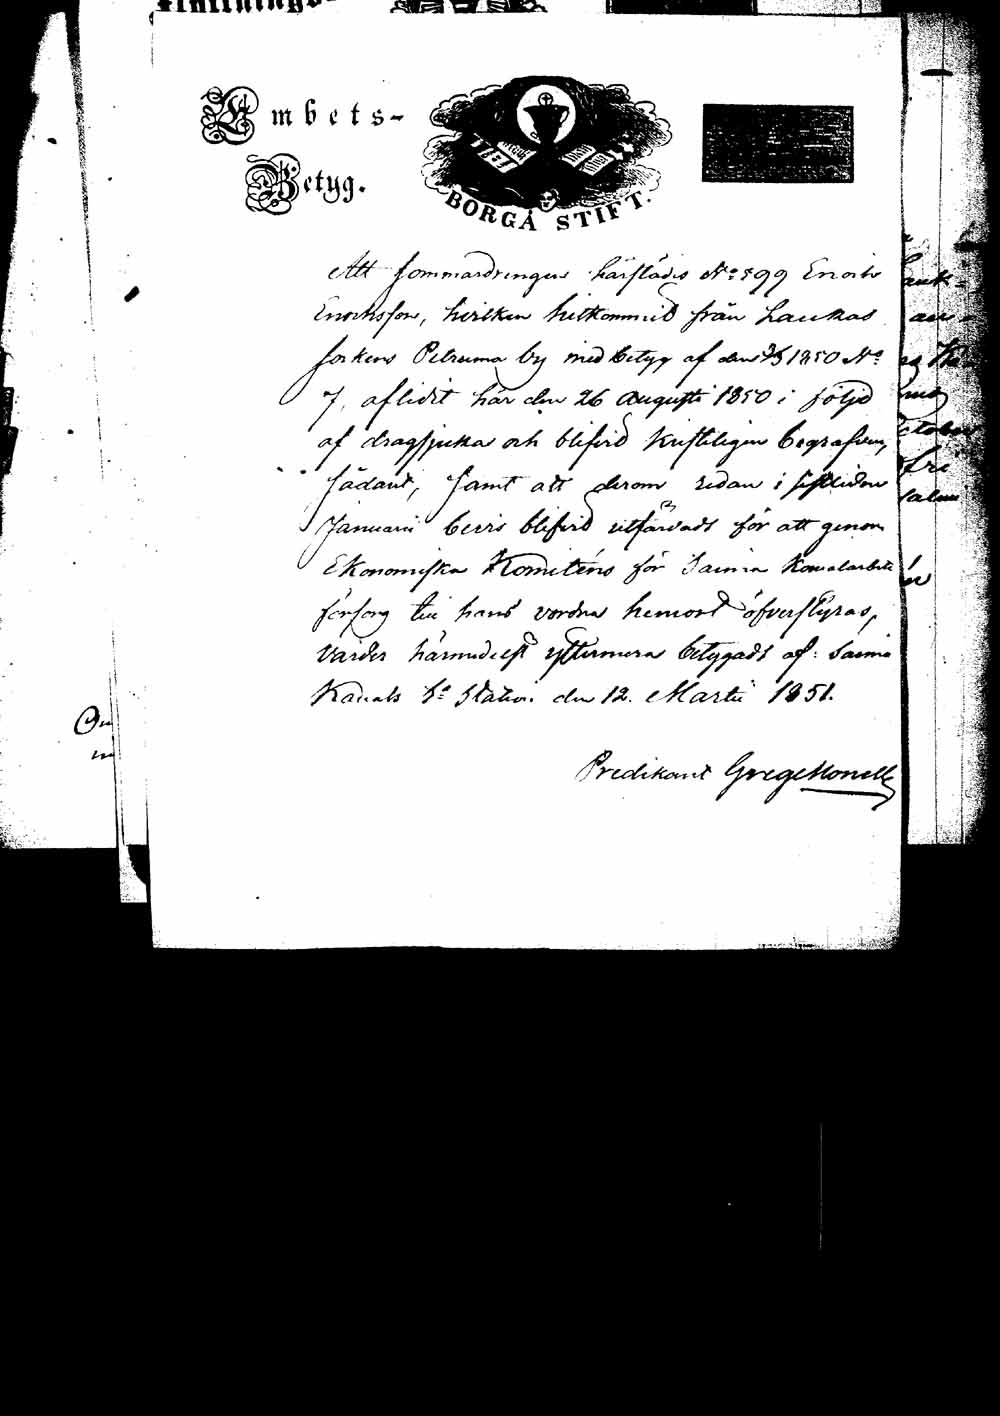 Embets-
Betyg.
BORGÅ STIFT.
Att sommardrängen härstädes No 599 Enoch
Enochsson, hvilken hitkommit från Laukas
sockens Petruma by med betyg af den 1850 No
7, aflidit här den 26 Augusti 1850 i följd
af dragsjuka och blifvit kristeligen begrafven,
sådant, samt att derom redan i sistlidne
Januarii bevis blifvit utfärdadt för att genom
Ekonomiska Komiténs för Saima Kanalarbete
försorg till hans vordna hemort öfverstyras,
varder härmedelst yttermera betygadt af: Saima
Kanals Station den 12. Martii 1851.
Predikant